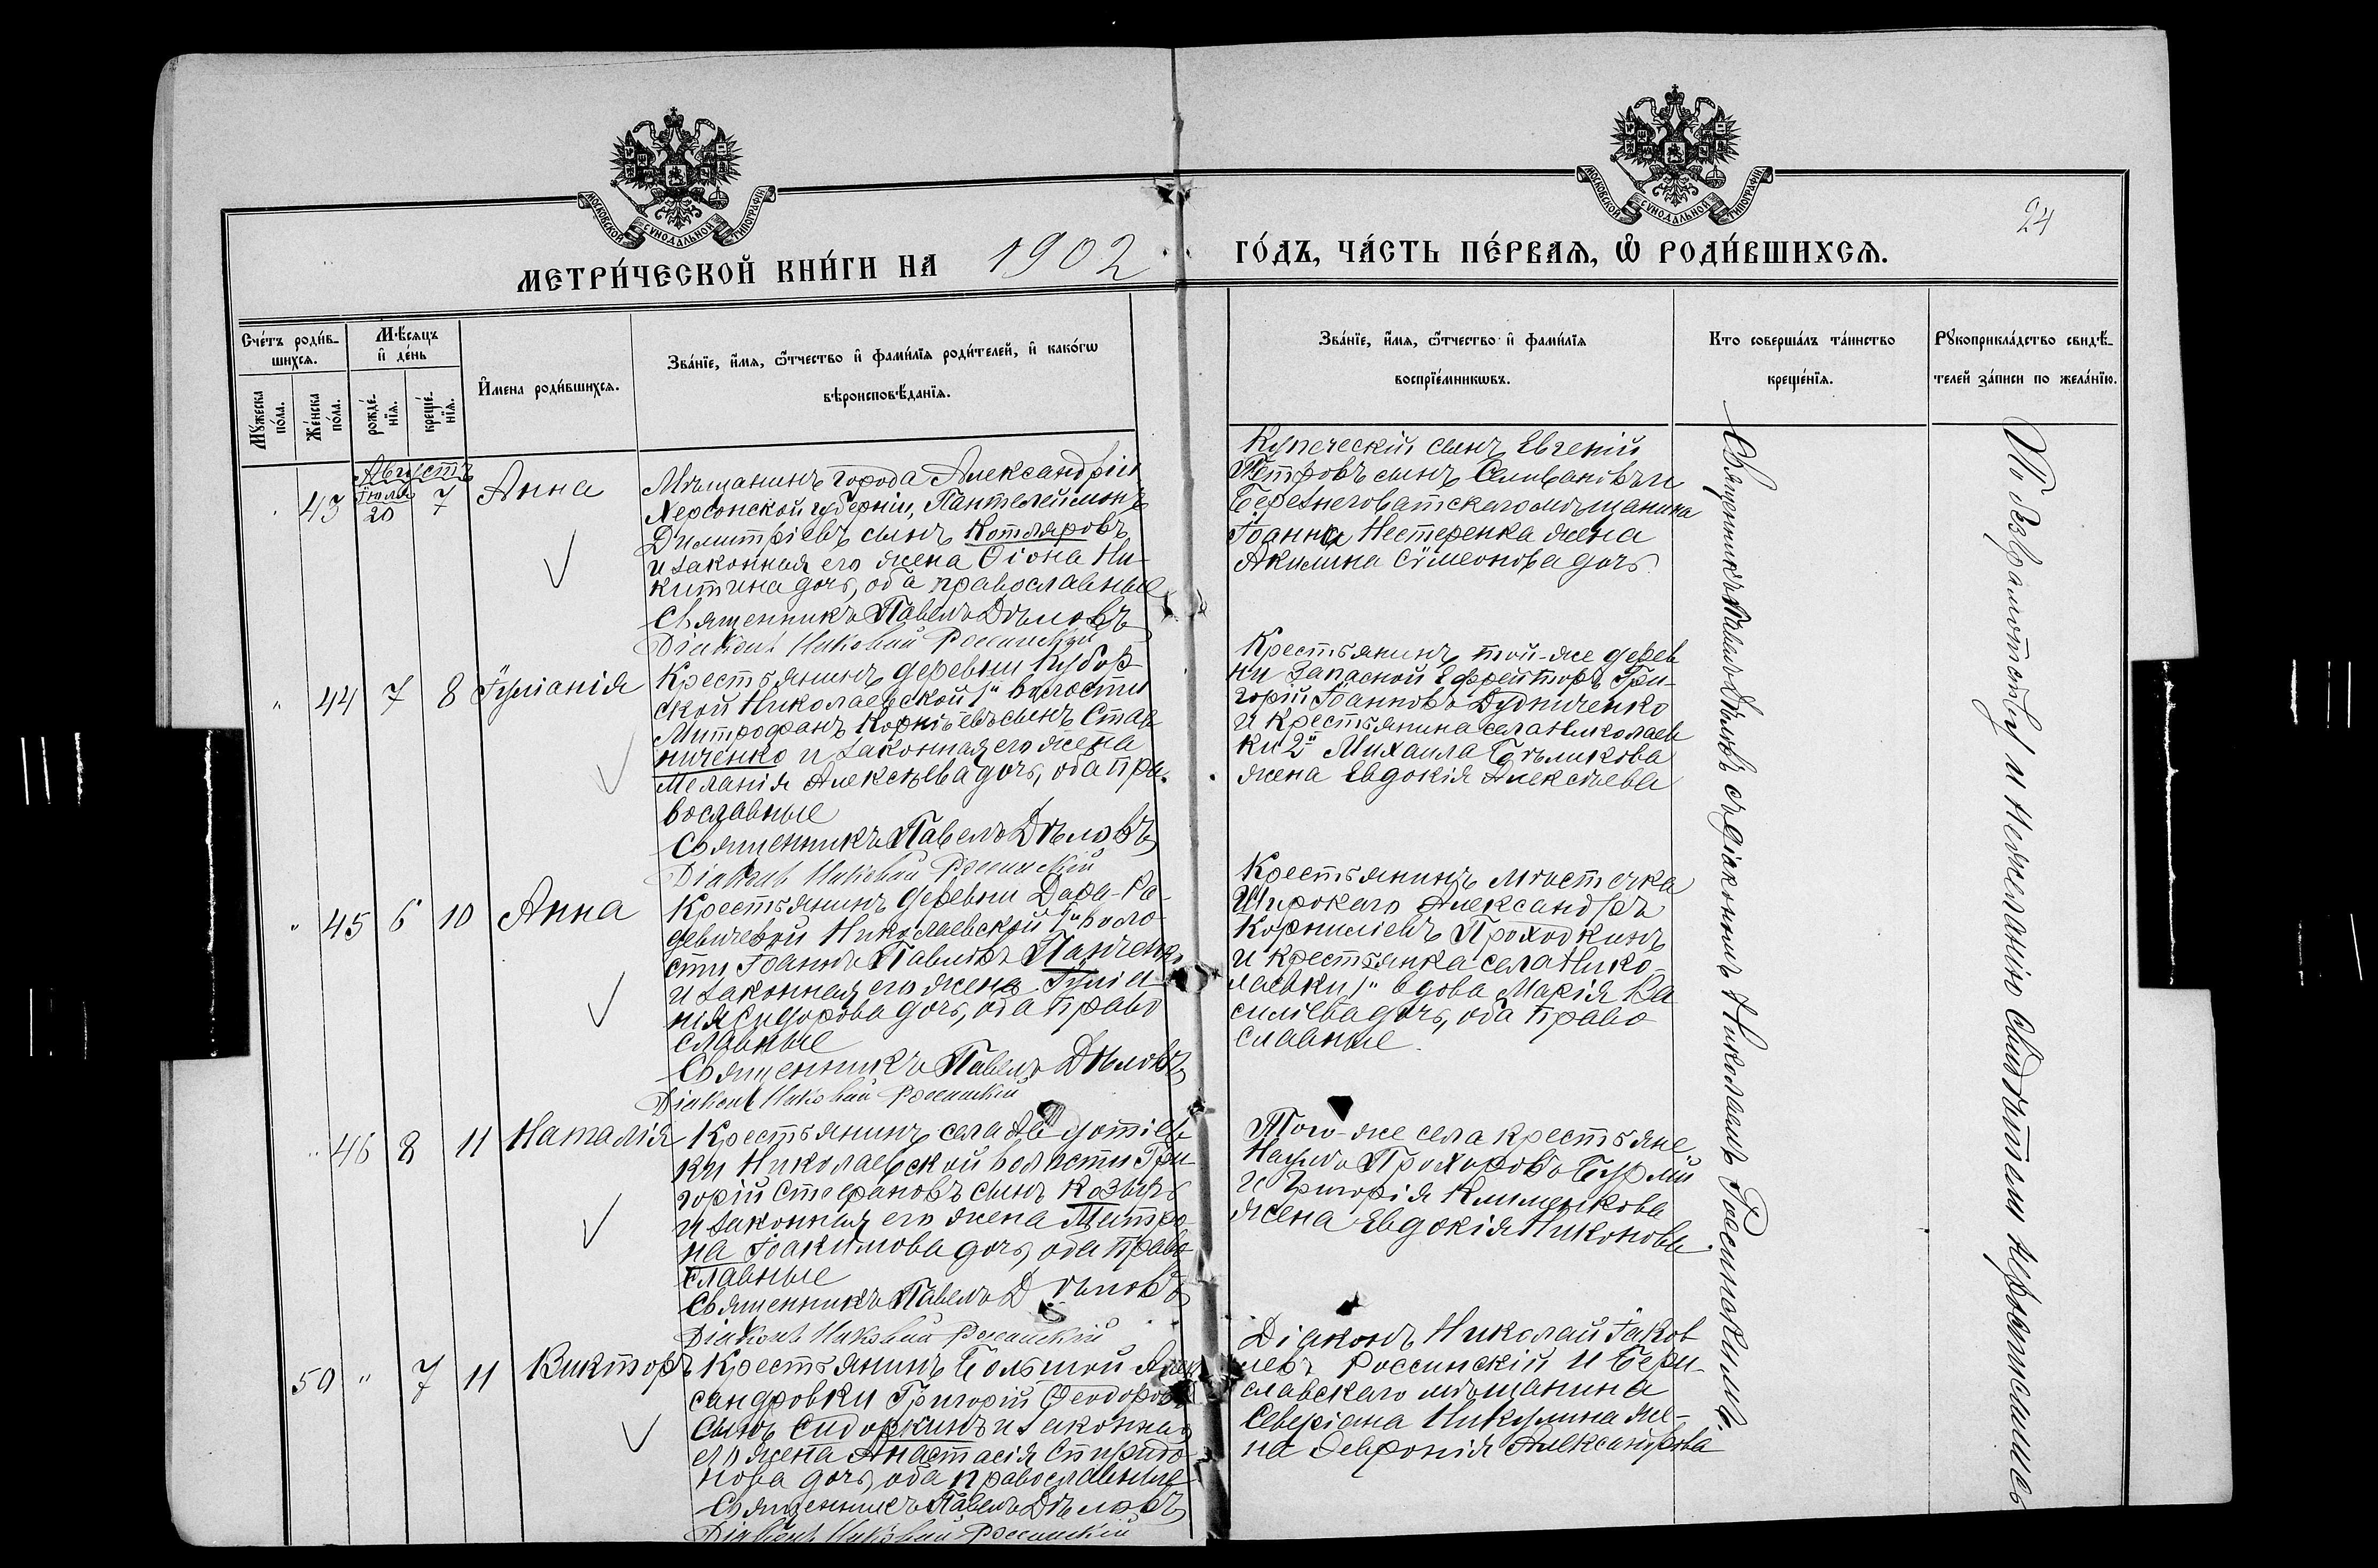 МОСКОВСКОЙ СѴНОДАЛЬНОЙ ТИПОГРАФІИ
МОСКОВСКОЙ СѴНОДАЛЬНОЙ ТИПОГРАФІИ
24
МЕТРИ́ЧЕСКОЙ КНИ́ГИ НА 1902 ГО́ДЪ, ЧА́СТЬ ПЕ́РВАѦ, Ѡ҆ РОДИ́ВШИХСѦ.
Сче́тъ роди́в-
шихсѧ.
Мꙋ́жеска
по́ла.
Же́нска
по́ла.
Мѣ́сѧцъ
и҆ де́нь
рожде́-
нїѧ.
креще́-
нїѧ.
И҆мена роди́вшихсѧ.
Зва́нїе, и҆́мѧ, ѻ҆́тчество и҆ фами́лїѧ роди́телей, и҆ како́гѡ
вѣроисповѣ́данїѧ.
Зва́нїе, и҆́мѧ, ѻ҆́тчество и҆ фами́лїѧ
воспрїе́мникѡвъ.
Кто соверша́лъ та́инство
креще́нїѧ.
Рꙋкоприкла́дство свидѣ́-
телей за́писи по жела́нїю.
Августъ
43 Іюля 20 7 Анна
Мѣщанинъ города Александріи
Херсонской губерніи, Пантелеймонъ
Димитріевъ сынъ Котляровъ
и законная его жена Ѳіона Ни-
китина дочь, оба православные
Священникъ Павелъ Дѣловъ
Діаконъ Николай Россинскій
Купеческій сынъ Евгеній
Петровъ сынъ Селивановъ и
Березнеговатскаго мѣщанина
Іоанна Нестеренка жена
Акилина Сѵмеонова дочь.
" 44 7 8 Іуліанія
Крестьянинъ деревни
ской Николаевской 1й волости
Митрофанъ Корніевъ сынъ Став
ниченко и законная его жена
Меланія Алексѣева дочь, оба пра-
вославные
Священникъ Павелъ Дѣловъ
Діаконъ Николай Россинскій
Крестьянинъ той-же дерев
ни запасной Ефрейторъ Гри-
горій Іоанновъ Дудниченко
и крестьянина села Николаев
ки 2й Михаила Бѣликова
жена Евдокія Алексѣева
" 45 6 10 Анна
Крестьянинъ деревни
Николаевской 1й воло-
сти, Іоаннъ Павловъ Панченко
и законная его жена Іуліа-
нія Сидорова дочь, оба право
славные
Священникъ Павелъ Дѣловъ
Діаконъ Николай Россинскій
Крестьянинъ мѣстечка
Широкаго Александръ
Корниліевъ Проходкинъ
и крестьянка села Нико-
лаевки 1й вдова Марія Ва
силіева дочь, оба право
славные.
" 46 8 11 Наталія
Крестьянинъ села
ки Николаевской волости Гри
горій Стефановъ сынъ Козырь
и законная его жена Матро-
на Іоакимова дочь, оба право
славные
Священникъ Павелъ Дѣловъ
Діаконъ Николай Россинскій
Того-же села крестьяне
Наумъ Прохоровъ Бурлій
и Григорія Клименкова
жена Евдокія Никонова.
50 " 7 11 Викторъ
Крестьянинъ Большой Алек
сандровки Григорій Ѳеодоровъ
сынъ Сидоркинъ и законная
его жена Анастасія Спиридо
нова дочь, оба православные
Священникъ Павелъ Дѣловъ
Діаконъ Николай Россинскій
Діаконъ Николай Іаков
левъ Россинскій и Бери-
славскаго мѣщанина
Северіана Никулина же-
на Февронія Александрова
Священникъ Павелъ Дѣловъ съ діакономъ Николаемъ Россинскимъ.
По безграмотству и нежеланію свидѣтели нерасписались